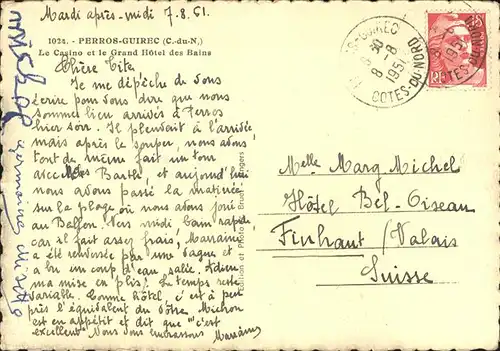 Mardi après-midi 7.8.51.
1024. - PERROS-GUIREC (C.-du-N.)
Le Casino et le Grand Hôtel des Bains
Chère Tite,
Je me dépêche de vous
écrire pour vous dire que nous
sommes bien arrivés à Perros
hier soir. Il pleuvait à l'arrivée
mais après le souper, nous avons
tout de même fait un tour
avec Mes Barths, et aujourd'hui
nous avons passé la matinée
sur la plage où nous avons joué
au Ballon. Vers midi, bain rapide
car il fait assez frais, Marraine
a été renversée par une vague et
a bu un coup d'eau salée. Adieu
ma mise en plis! Le temps reste
variable. Comme hôtel, c'est à peu
près l'équivalent du vôtre. Michon
est en appétit et dit que "c'est
excellent" Nous vous embrassons
Melle Marg. Michel
Hôtel Bel-Oiseau
Finhaut / Valais
Suisse
PERROS-GUIREC
8-8
1951
COTES-DU-NORD